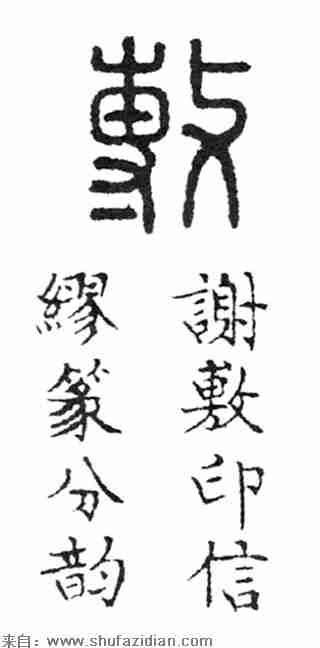 敷
謝敷印信
繆篆分韵
来自：www.shufazidian.com